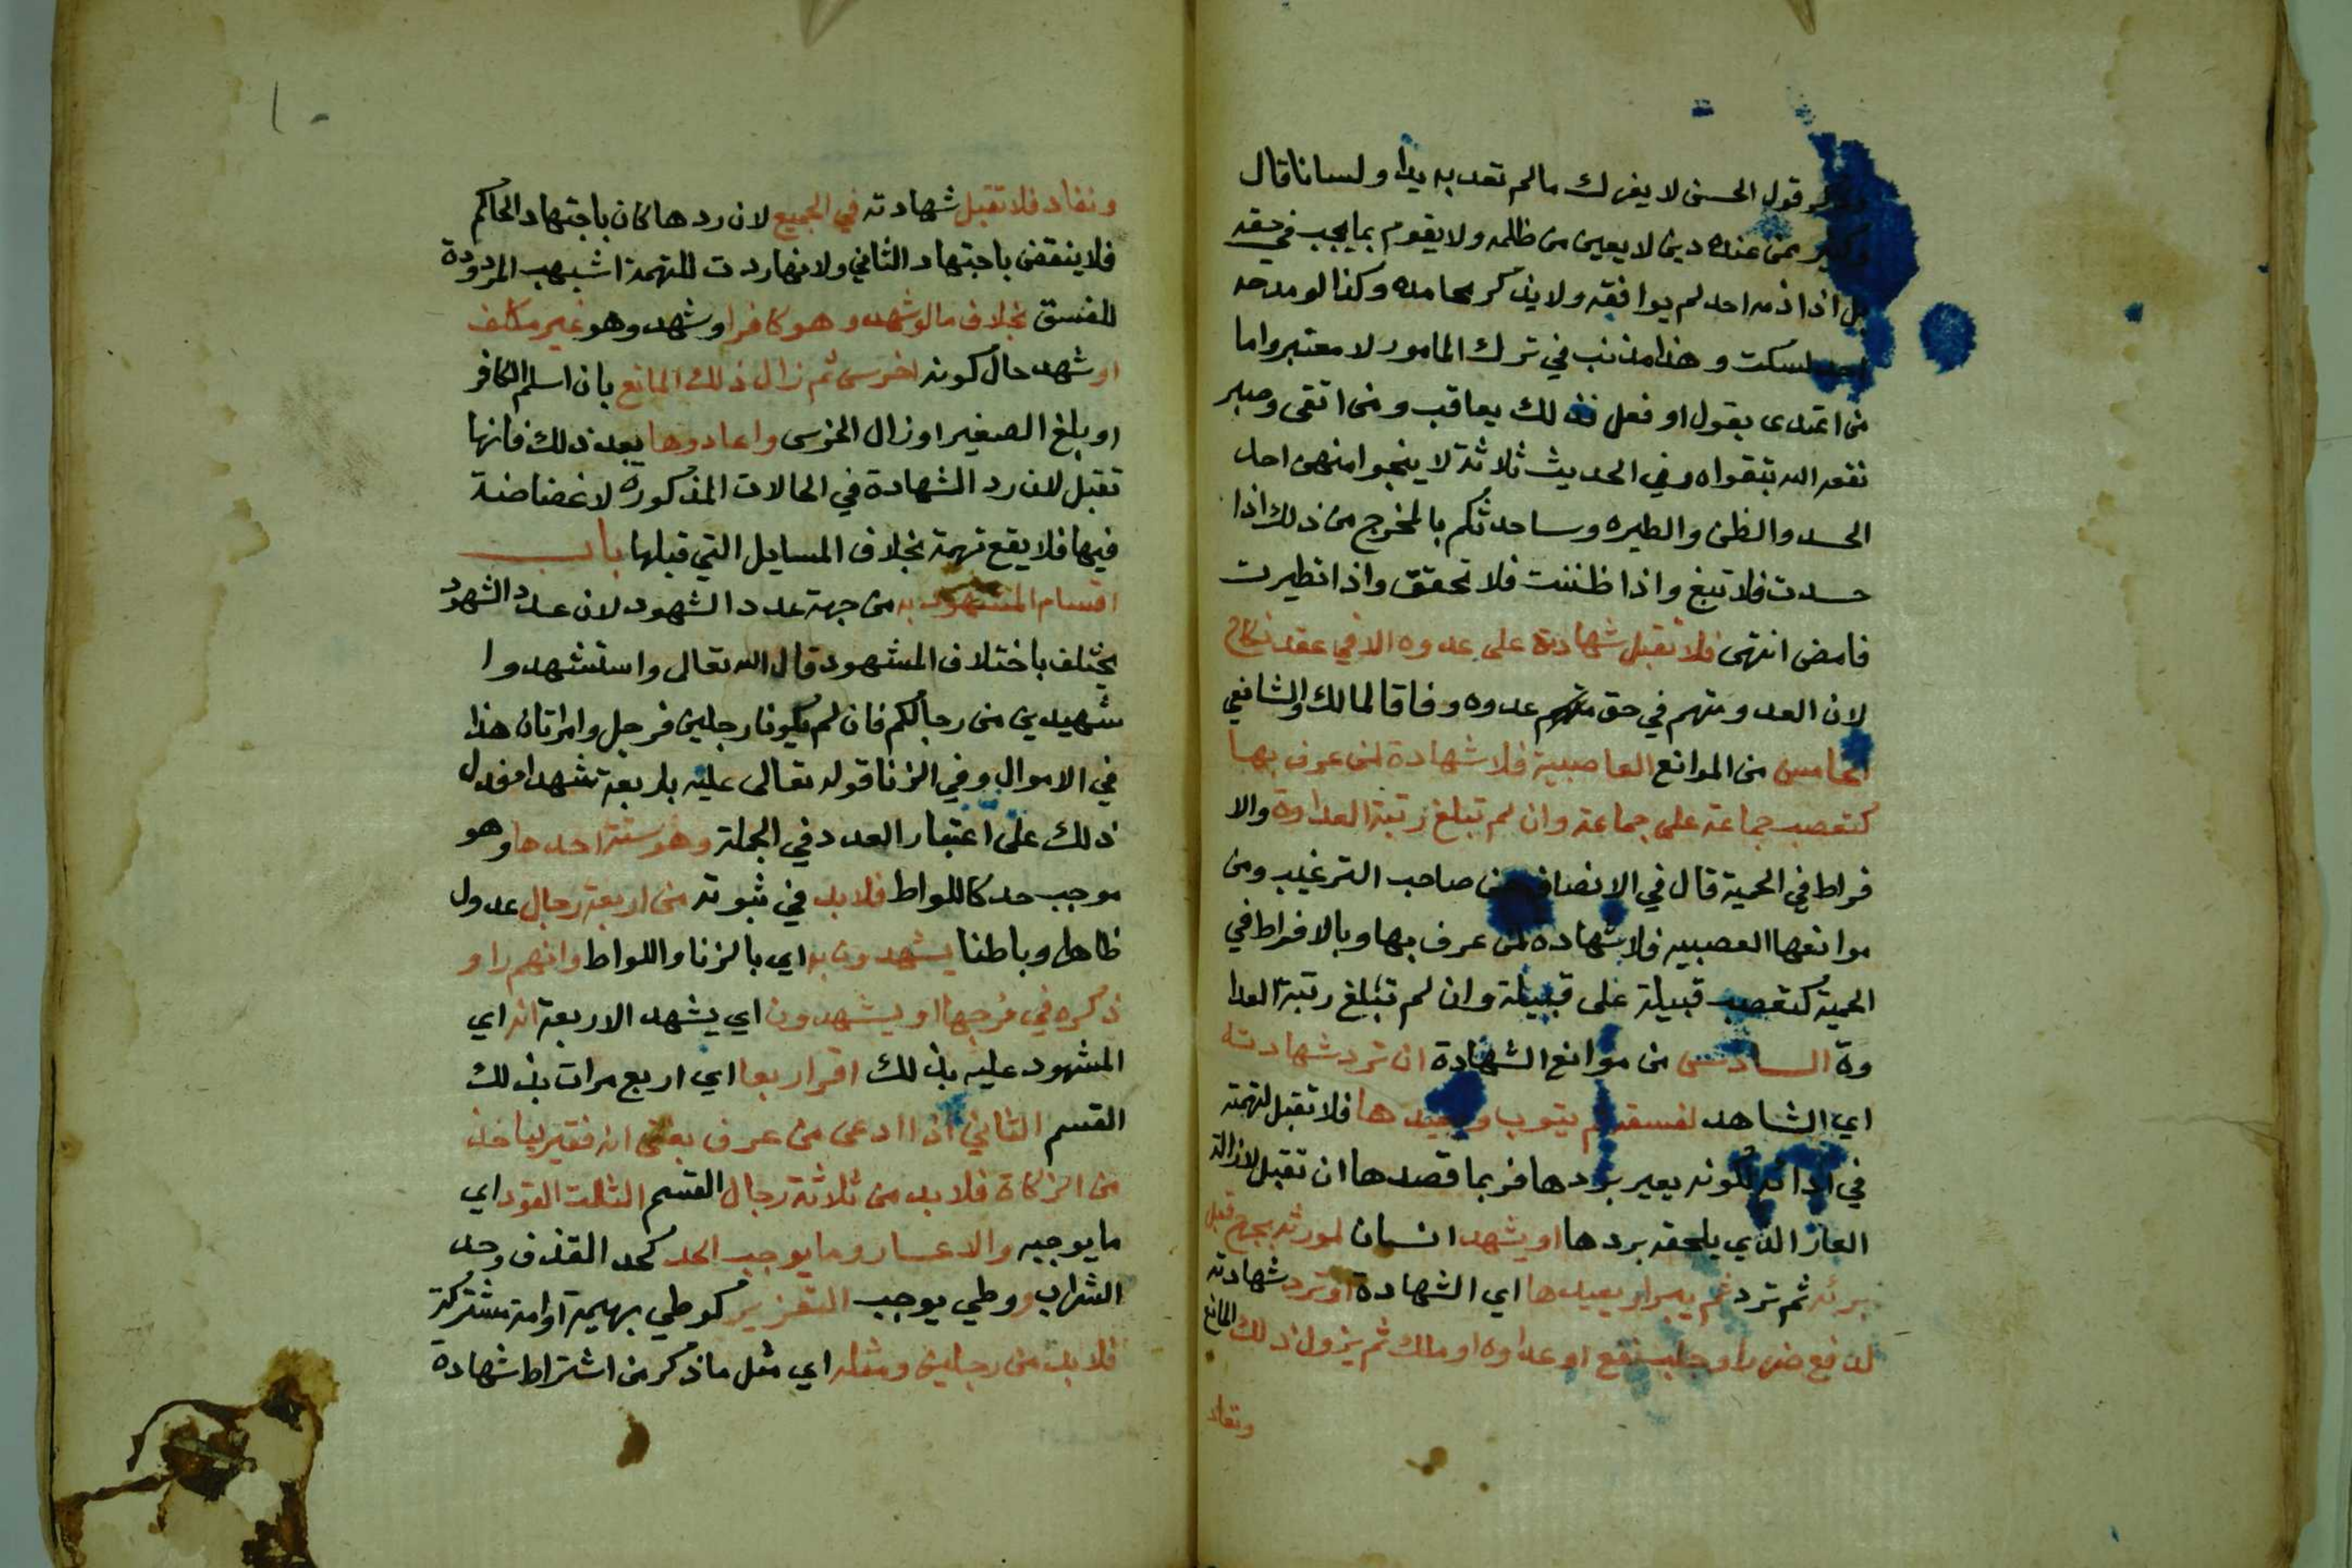 قول الحسن لا يضرك مالم تعد به يدا ولسانا قال
وكثير ممن عنده دين لا يعين من ظلمه ولا يقوم بما يجب في حقه
بل اذا ذمه احد لم يوافقه ولا يذكر محامده وكذا لو مدحه
احد لسكت وهذا مذنب في ترك المامور لا معتبر واما
من اعتدى بقول او فعل فذلك يعاقب ومن اتقى وصبر
نفعه الله بتقواه وفي الحديث ثلاثة لا ينجوا منهن احد
الحسد والظن والطيره وساحدثكم بالمخرج من ذلك اذا
حسدت فلا تبغ واذا ظننت فلا تحقق واذا تطيرت
فامض انتهى فلا تقبل شهادته على عدوه الا في عقد نكاح
لان العدو متهم في حق عدوه وفاقا لمالك والشافعي
الخامس من الموانع العاصبية فلا شهادة لمن عرف بها
كتعصب جماعة على جماعة وان لم تبلغ رتبة العداوة والا
فراط في الحمية قال في الانصاف عن صاحب الترغيب ومن
موانعها العصبيه فلا شهاده لمن عرف بها وبالافراط في
الحمية كتعصب قبيلة على قبيلة وان لم تبلغ رتبة العدا
وة السادس من موانع الشهادة ان ترد شهادته
اي الشاهد لفسقه ثم يتوب ويعيدها فلا تقبل لتهمته
في ادائه لكونه يعير بردها فربما قصدها ان تقبل لازالة
العار الذي يلحقه بردها او يشهد انسان لمورثه بجرح قبل
برئه ثم ترد ثم يبرا ويعيدها اي الشهادة او ترد شهادته
لدفع ضرر او جلب نفع او عداوه او ملك ثم يزول ذلك المانع
وتعاد
١٠
وتعاد فلا تقبل شهادته في الجميع لان ردها كان باجتهاد الحاكم
فلا ينقض باجتهاد الثاني ولانها ردت للتهمة اشبهب المردودة
للفسق بخلاف مالو شهد وهو كافر او شهد وهو غير مكلف
او شهد حال كونه اخرس ثم زال ذلك المانع بان اسلم الكافر
او بلغ الصغير او زال الخرس واعادوها بعد ذلك فانها
تقبل لان رد الشهادة في الحالات المذكوره لا غضاضة
فيها فلا يقع تهمة بخلاف المسايل التي قبلها باب
اقسام المشهود به من جهة عدد الشهود لان عدد الشهود
يختلف باختلاف المشهود قال الله تعالى واستشهدوا
شهيدين من رجالكم فان لم يكونا رجلين فرجل وامراتان هذا
في الاموال وفي الزنا قوله تعالى عليه باربعة شهدا فدل
ذلك على اعتبار العدد في الجملة وهو ستة احدها وهو
موجب حد كاللواط فلا بد في ثبوته من اربعة رجال عدول
ظاهرا وباطنا يشهدون به اي بالزنا واللواط وانهم راو
ذكره في فرجها او يشهدون اي يشهد الاربعة انه اي
المشهود عليه بذلك اقر اربعا اي اربع مرات بذلك
القسم الثاني اذا ادعى من عرف بغنى انه فقير لياخذ
من الزكاة فلا بد من ثلاثة رجال القسم الثالث القود اي
ما يوجبه والاعسار وما يوجب الحد كحد القذف وحد
الشراب ووطي يوجب التعزير كوطي بهيمة او امة مشتركة
فلا بد من رجلين ومثله اي مثل ماذكر من اشتراط شهادة